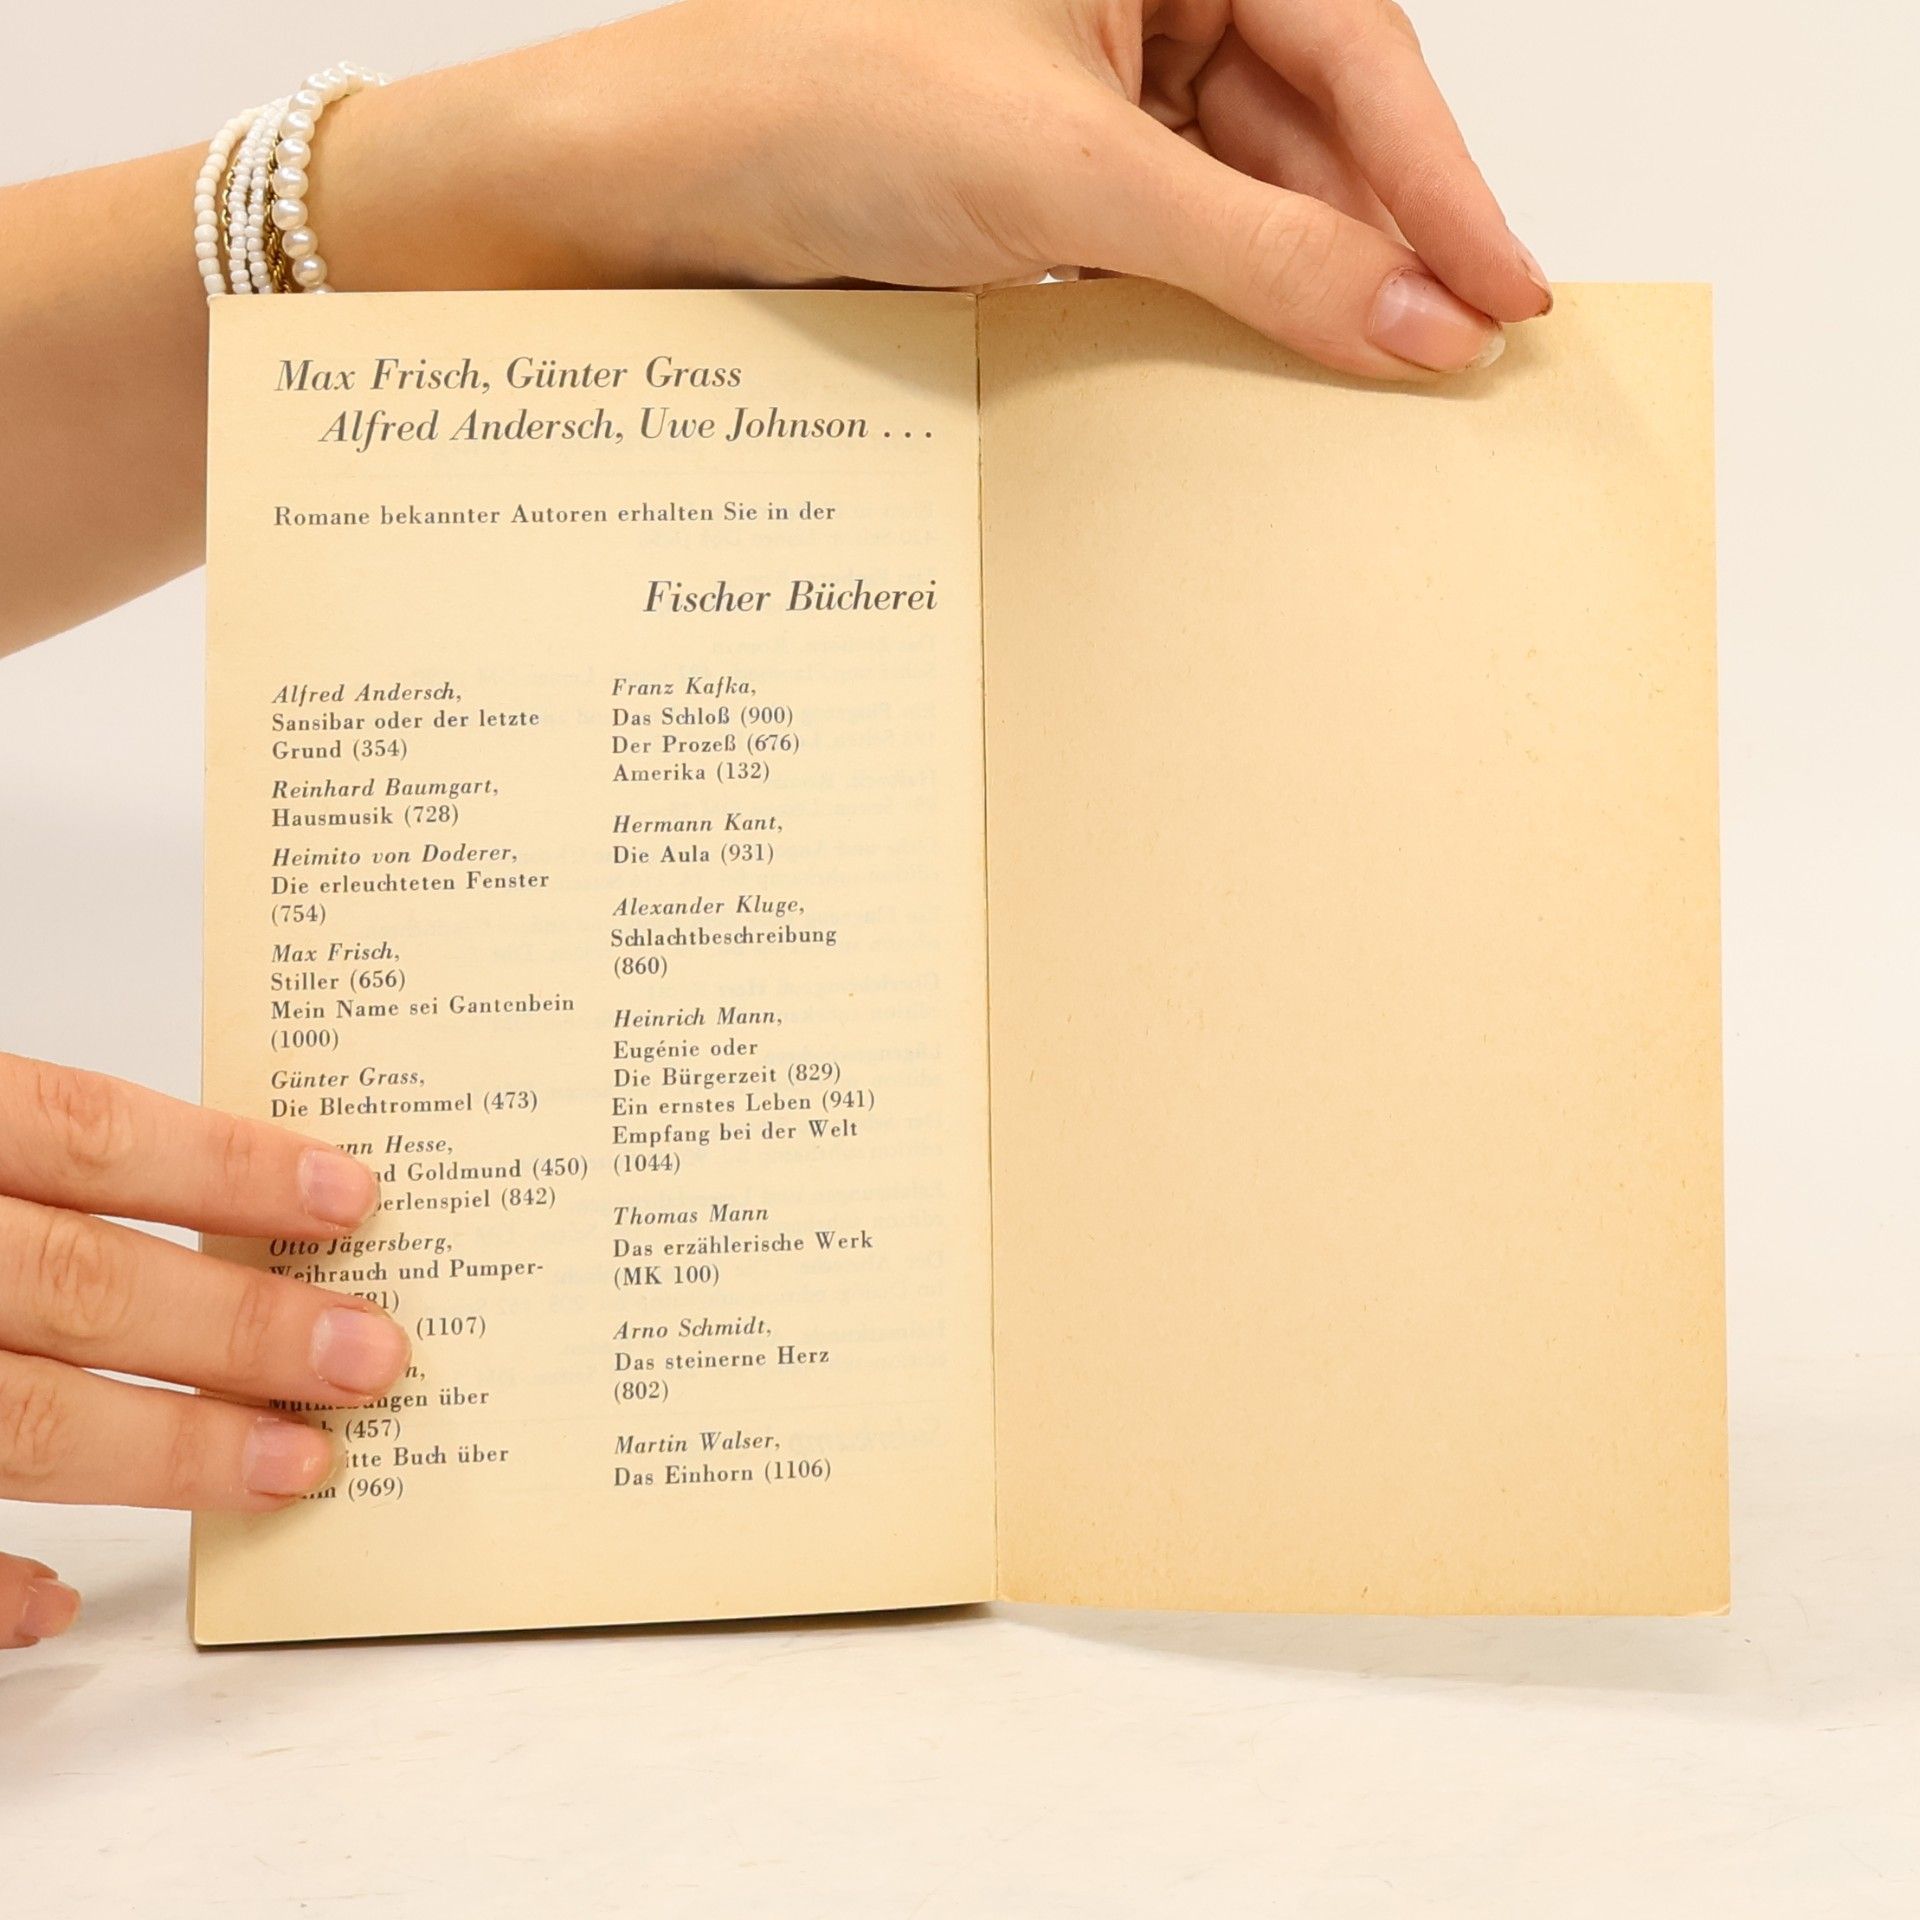 Max Frisch, Günter Grass
Alfred Andersch, Uwe Johnson . . .
Romane bekannter Autoren erhalten Sie in der
Fischer Bücherei
Alfred Andersch,
Sansibar oder der letzte
Grund (354)
Reinhard Baumgart,
Hausmusik (728)
Heimito von Doderer,
Die erleuchteten Fenster
(754)
Max Frisch,
Stiller (656)
Mein Name sei Gantenbein
(1000)
Günter Grass,
Die Blechtrommel (473)
Hesse,
Goldmund (450)
(842)
Otto Jägersberg,
Weihrauch und Pumper-
(1107)
über
(457)
Buch über
(969)
Franz Kafka,
Das Schloß (900)
Der Prozeß (676)
Amerika (132)
Hermann Kant,
Die Aula (931)
Alexander Kluge,
Schlachtbeschreibung
(860)
Heinrich Mann,
Eugénie oder
Die Bürgerzeit (829)
Ein ernstes Leben (941)
Empfang bei der Welt
(1044)
Thomas Mann
Das erzählerische Werk
(MK 100)
Arno Schmidt,
Das steinerne Herz
(802)
Martin Walser,
Das Einhorn (1106)